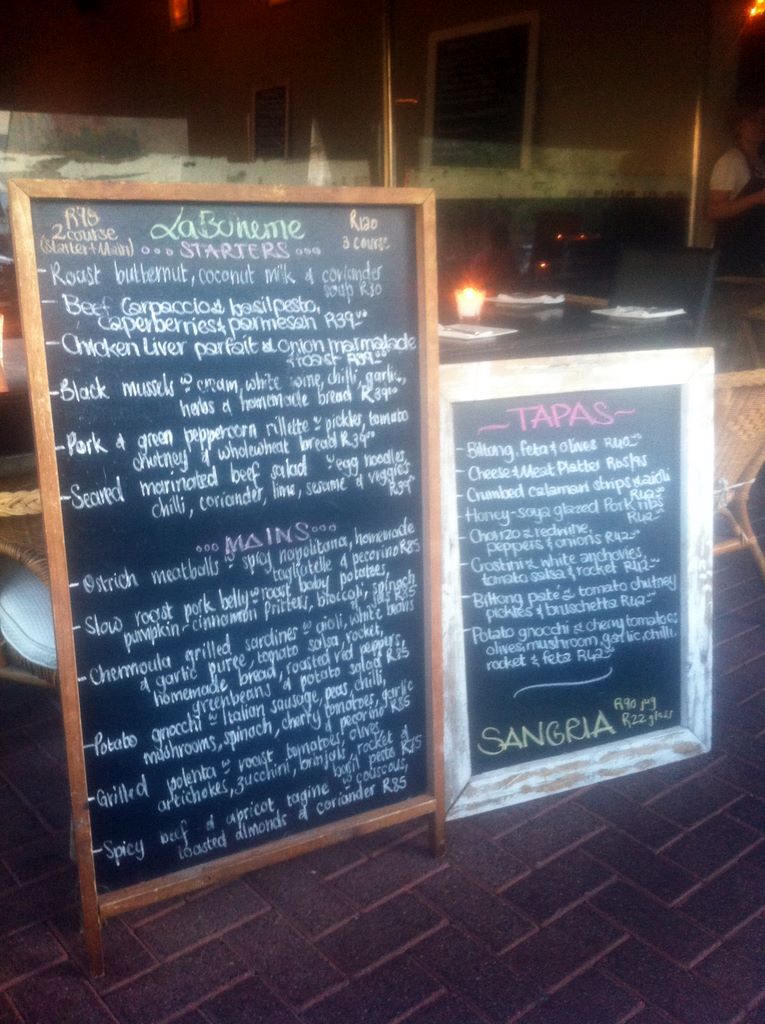 2 course
(starter + Main)
La Boheme
R120
3 course
ooo STARTERS ooo
- Roast butternut, coconut milk & coriander
soup R30
- Beef Carpaccio & basil pesto,
caperberries & parmesan R39.00
- Chicken Liver parfait & onion marmalade
toast
- Black mussels w cream, white wine, chilli, garlic,
herbs & homemade bread R39.00
- Pork & green peppercorn rillette w pickles, tomato
chutney & wholewheat bread R39.00
- Seared marinated beef salad w egg noodles,
chilli, coriander, lime, sesame & veggies
R39.00
ooo MAINS ooo
- Ostrich meatballs w spicy napolitana, homemade
tagliatelle & pecorino R85
- Slow roast pork belly w roast baby potatoes,
pumpkin-cinnamon fritters, broccoli, spinach
- Chermoula grilled sardines w aioli, white beans
& garlic puree, tomato salsa, rocket,
homemade bread, roasted red peppers,
greenbeans & potato salad R85
- Potato gnocchi w Italian sausage, peas, chilli,
mushrooms, spinach, cherry tomatoes, garlic
& pecorino R85
- Grilled polenta w roast tomatoes, olives,
artichokes, zucchini, brinjals, rocket &
basil pesto R75
- Spicy beef & apricot tagine w couscous,
toasted almonds & coriander R85
~ TAPAS ~
- Biltong, feta & olives R42.00
- Cheese & Meat Platter R65/95
- Crumbed calamari strips & aioli
R42.00
- Honey-soya glazed Pork ribs
R42.00
- Chorizo & redwine,
peppers & onions R42.00
- Crostini & white anchovies,
tomato salsa & rocket R42.00
- Biltong paté & tomato chutney
pickles & bruschetta R42.00
- Potato gnocchi & cherry tomatoes
olives, mushroom, garlic, chilli,
rocket & feta R42.00
SANGRIA
R90 jug
R22 glass